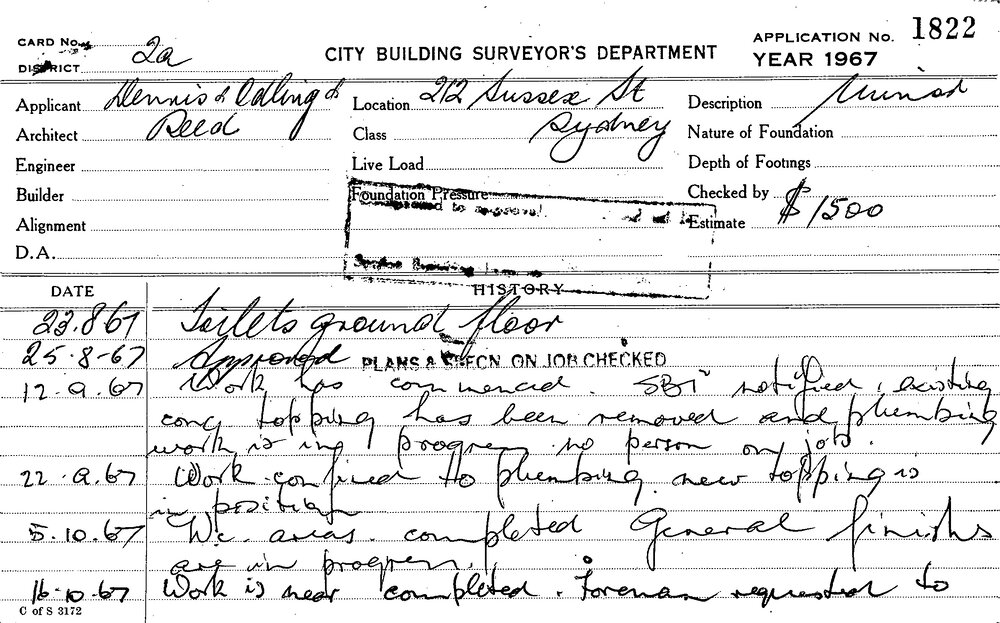 CARD No.
DISTRICT 2a
CITY BUILDING SURVEYOR'S DEPARTMENT
APPLICATION No. 1822
YEAR 1967
Applicant Dennis & Odling &
Architect Reed
Engineer
Builder
Alignment
D.A.
Location 212 Sussex St
Class Sydney
Live Load
Foundation Pressure
Description
Nature of Foundation
Depth of Footings
Checked by
Estimate $1500
to approval.
DATE
HISTORY
23.8.67 Toilets ground floor
25-8-67 Approved PLANS & SPECN. ON JOB CHECKED
12.9.67 Work has commenced. SBI notified, existing
conc topping has been removed and plumbing
work is in progress no person on job.
22.9.67 Work confined to plumbing. new topping is
in position
5.10.67 W.c. areas. completed General finishes
are in progress.
16.10.67 Work is near completed. Foreman requested to
C of S 3172